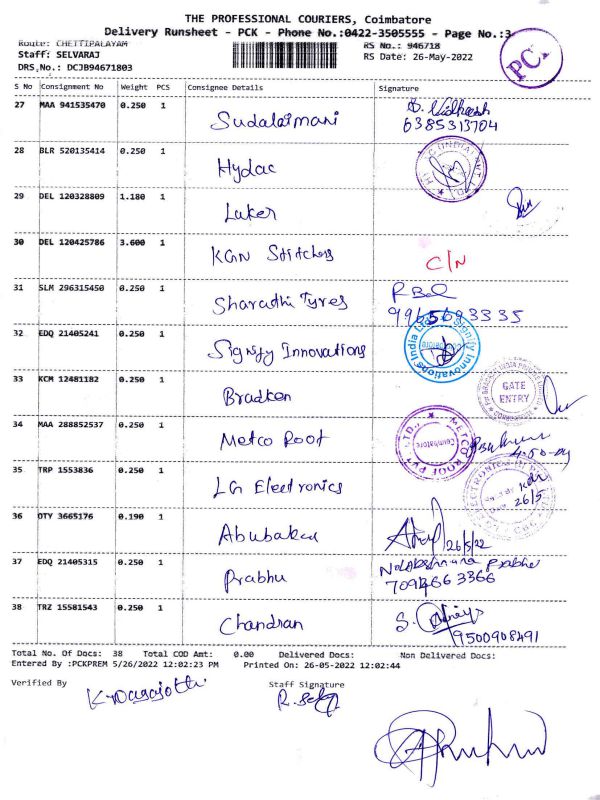 THE PROFESSIONAL COURIERS, Coimbatore
Delivery Runsheet - PCK - Phone No.:0422-3505555 - Page No.:3
Route: CHETTIPALAYAM
RS No.: 946718
Staff: SELVARAJ
RS Date: 26-May-2022
DRS.No.: DCJB94671803
PCK
S No Consignment No Weight PCS Consignee Details Signature
27 MAA 941535470 0.250 1 Sudalaimani
6385313704
28 BLR 520135414 0.250 1 Hydac
29 DEL 120328809 1.180 1 Laker
30 DEL 120425786 3.600 1 KGN Stitches C/N
31 SLM 296315450 0.250 1 Sharadhi Tyres
9965693335
32 EDQ 21405241 0.250 1 Signify Innovations
Signify Innovations India
33 KCM 12481182 0.250 1 Bradken
GATE
ENTRY
34 MAA 288852537 0.250 1 Metco Roof
METCO ROOF PVT LTD.,
Coimbatore
35 TRP 1553836 0.250 1 LG Electronics
26/5
36 OTY 3665176 0.190 1 Abubakar
26/5/22
37 EDQ 21405315 0.250 1 Prabhu
7094663366
38 TRZ 15581543 0.250 1 Chandran
9500908491
Total No. Of Docs: 38 Total COD Amt: 0.00 Delivered Docs: Non Delivered Docs:
Entered By :PCKPREM 5/26/2022 12:02:23 PM Printed On: 26-05-2022 12:02:44
Verified By Staff Signature